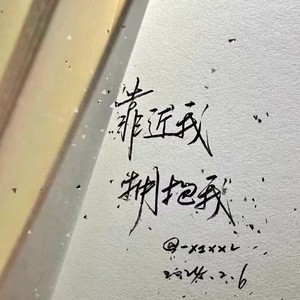 靠近我
拥抱我
@-xxxxz
2024.2.6